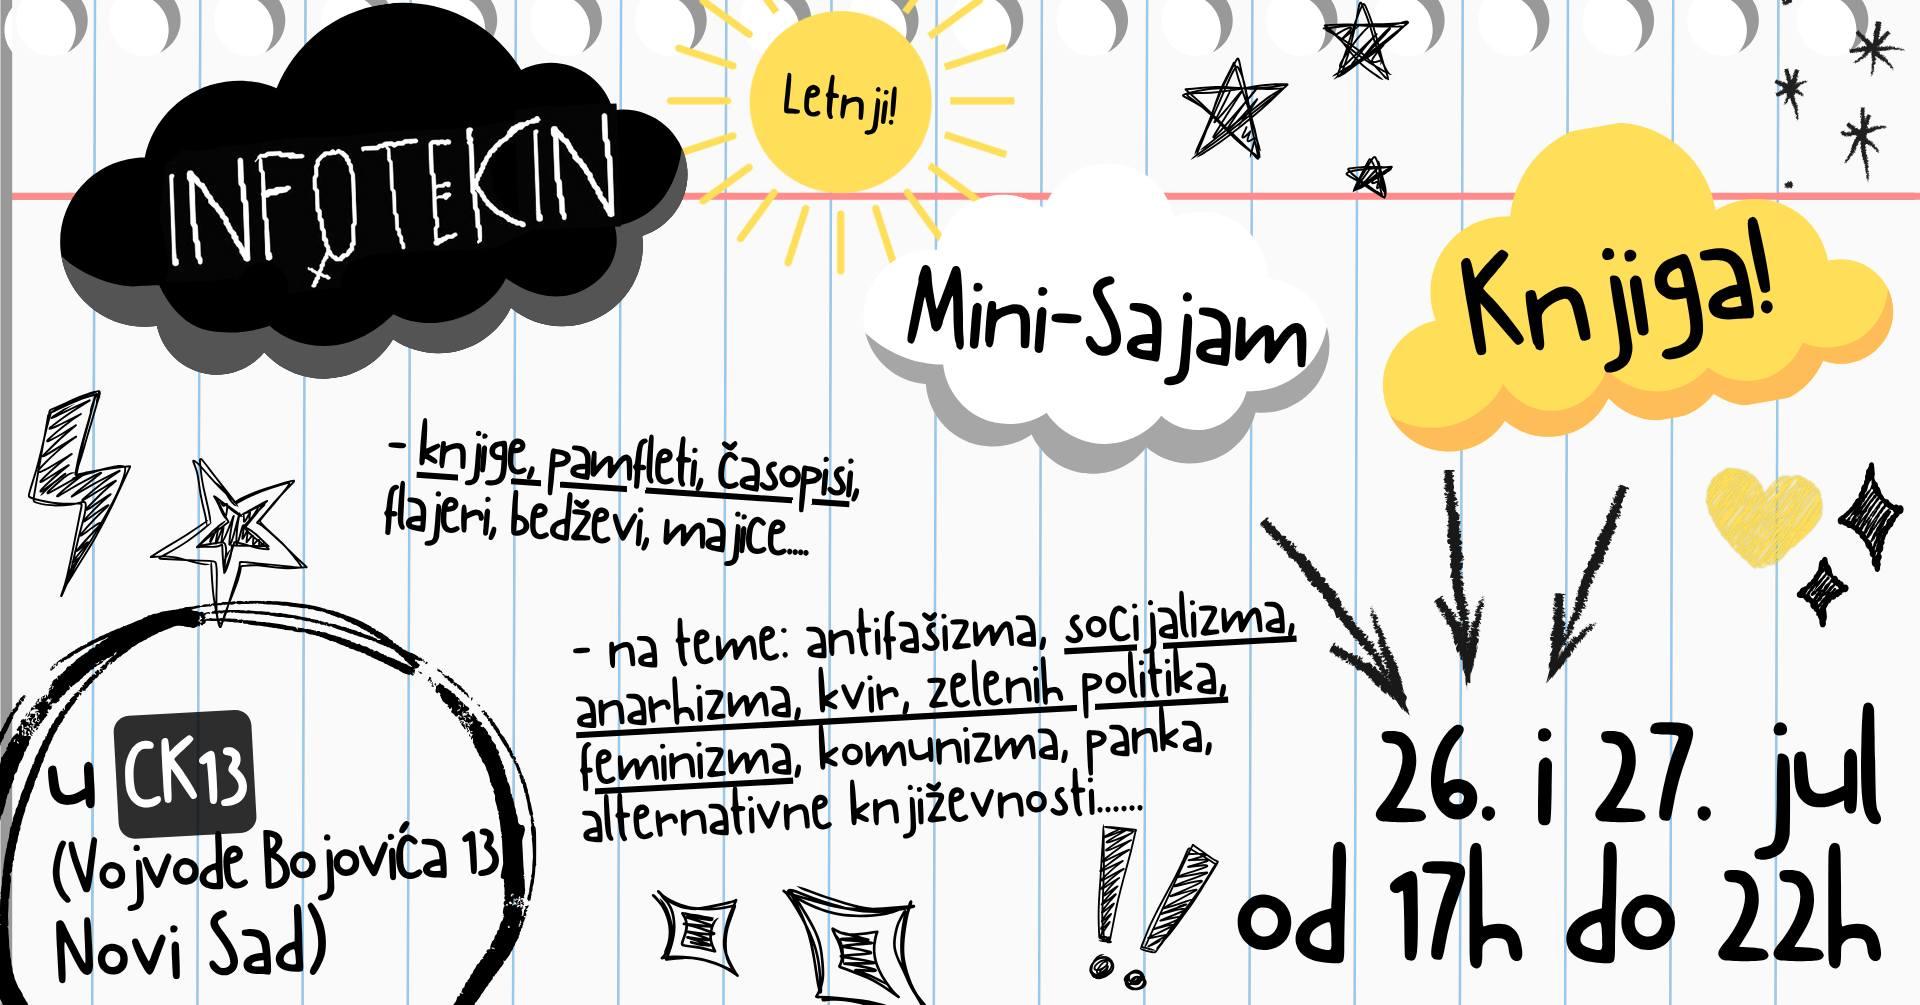 INFOTEKIN
Letnji!
Mini-Sajam
Knjiga!
- knjige, pamfleti, časopisi,
flajeri, bedževi, majice....
- na teme: antifašizma, socijalizma,
anarhizma, kvir, zelenih politika,
feminizma, komunizma, panka,
alternativne književnosti......
u CK13
(Vojvode Bojovića 13
Novi Sad)
26. i 27. jul
od 17h do 22h